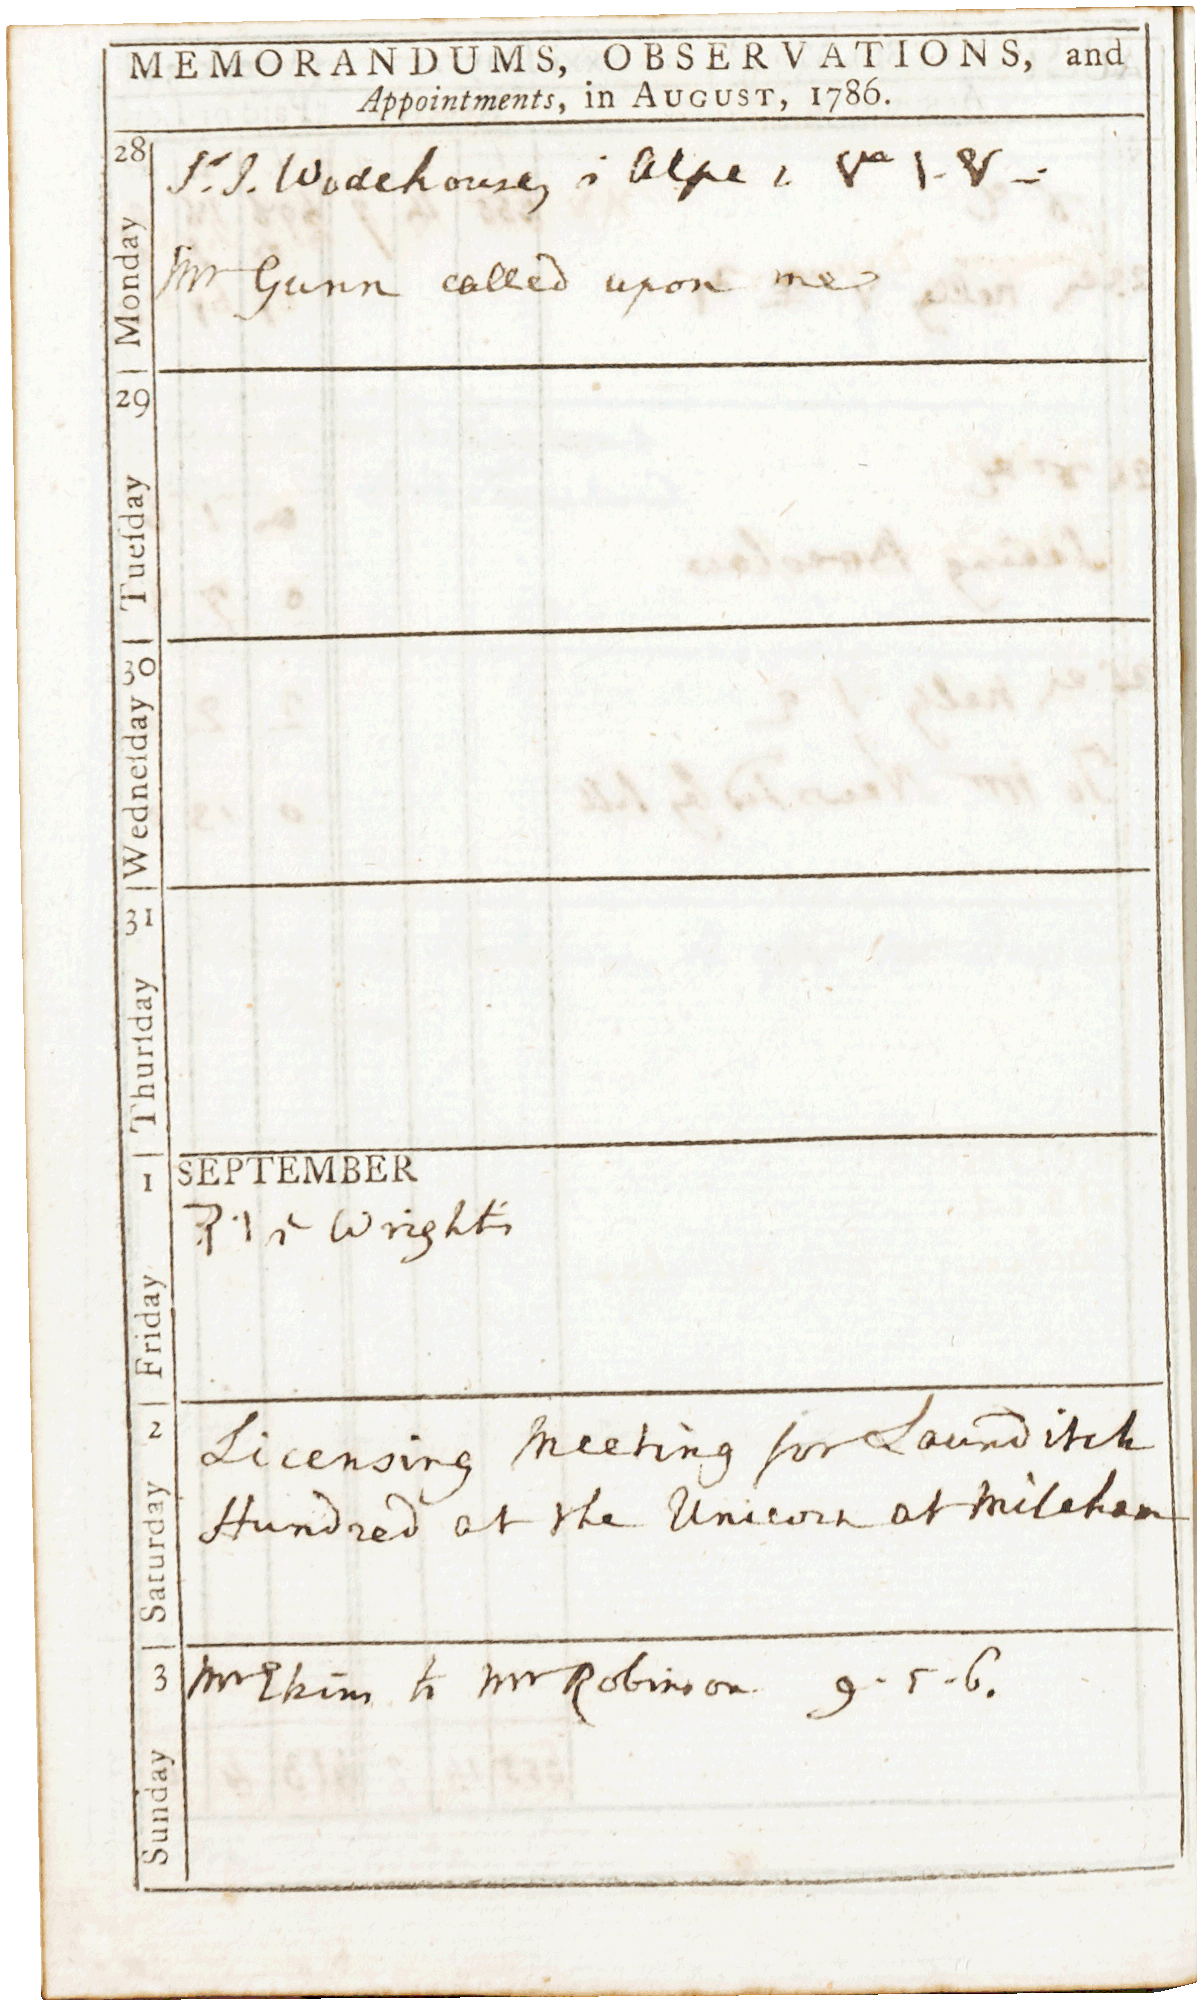 MEMORANDUMS, OBSERVATIONS, and
Appointments, in AUGUST, 1786.
28
Monday
Sr. J. Wodehouse, Alpe
Mr Gunn called upon me
29
Tueſday
30
Wedneſday
31
Thurſday
1
SEPTEMBER
Friday
Wright's
2
Saturday
Licensing Meeting for Launditch
Hundred at the Unicorn at Mileham
3
Sunday
Mr Ekins to Mr Robinson 9-5-6.